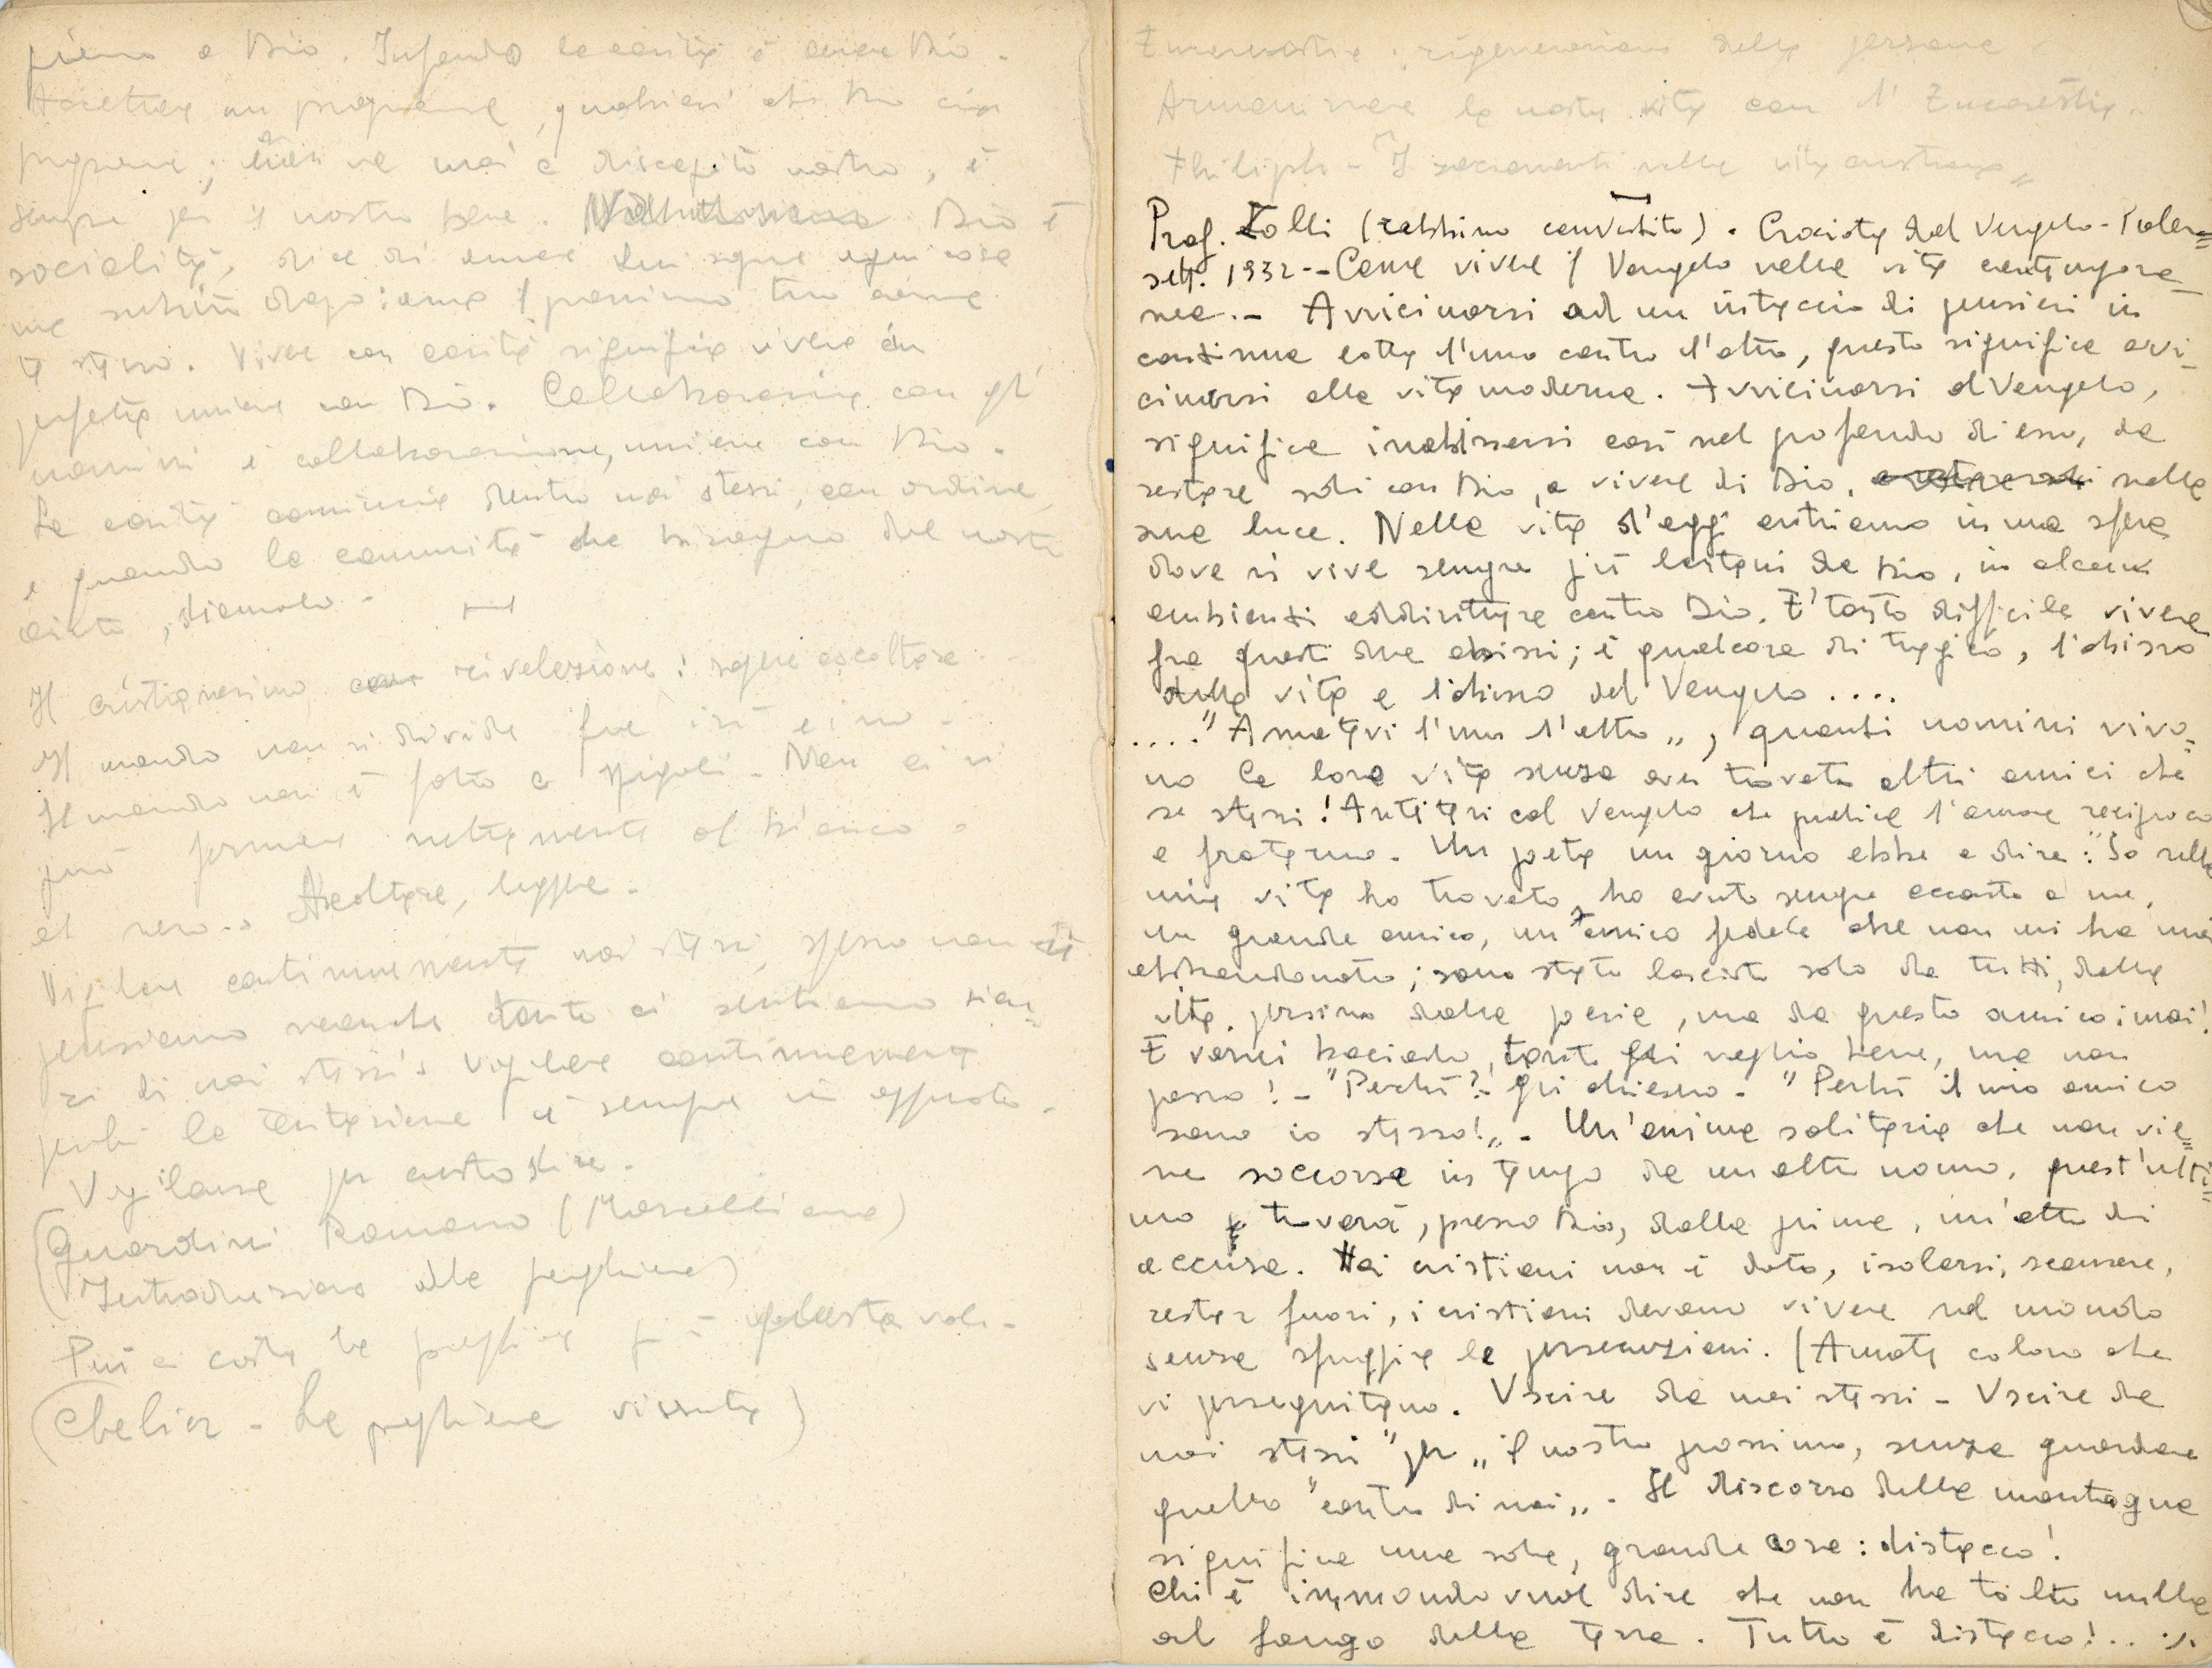 prima a Dio. In fondo la carità è amare Dio.
Accettare un programma, qualsiasi che Dio ci
propone; anche se va a discapito nostro, è
sempre per il nostro bene. Dio è
socialità, dice di amare Lui sopra ogni cosa
ma subito dopo: ama il prossimo tuo come
te stesso. Vivere con carità significa vivere in
perfetta unione con Dio. Collaborazione con gli
uomini è collaborazione, unione con Dio.
La carità comincia dentro noi stessi, con ordine
e quando la comunità ha bisogno del nostro
aiuto, diamolo.
Il cristianesimo rivelazione: sapere ascoltare
Il mondo non si divide fra sì e no.
Il mondo non è fatto a Non ci si
può fermare nettamente al bianco o
al nero.. Ascoltare, leggere.
Vigilare continuamente noi stessi, spesso non ci
pensiamo neanche tanto ci sentiamo sicu=
ri di noi stessi. Vigilare continuamente
perché la tentazione è sempre in agguato.
Vigilanza per custodire.
(Guardini Romano (Morcelliana)
Introduzione alla preghiera)
Più ci costa la preghiera più è
(Chelier - La preghiera vissuta)
Eucarestia: rigenerazione della persona.
Armonizzare la nostra vita con l'Eucarestia.
Philiph - I sacramenti nella vita cristiana„
Prof. Zolli (rabbino convertito). Crociata del Vangelo -
sett. 1952 - Come vivere il Vangelo nella vita contempora=
nea. - Avvicinarsi ad un intreccio di pensieri in
continua lotta l'uno contro l'altro, questo significa avvi=
cinarsi alla vita moderna. Avvicinarsi al Vangelo,
significa inabissarsi così nel profondo di esso, da
restare soli con Dio, a vivere di Dio, nella
sua luce. Nella vita d'oggi entriamo in una sfera
dove si vive sempre più lontani da Dio, in alcuni
ambienti addirittura contro Dio. E' tanto difficile vivere
fra questi due abissi; è qualcosa di tragico, l'abisso
della vita e l'abisso del Vangelo ....
...." Amatevi l'un l'altro „, quanti uomini vivo=
no la loro vita senza aver trovato altri amici che
se stessi! Antitesi col Vangelo che predica l'amore reciproco
e fraterno. Un poeta un giorno ebbe a dire: "Io nella
mia vita ho trovato, ho avuto sempre accanto a me,
un grande amico, un amico fedele che non mi ha mai
abbandonato; sono stato lasciato solo da tutti, dalla
vita, persino dalla poesia, ma da questo amico: mai!
E vorrei baciarlo, tanto gli voglio bene, ma non
posso! - "Perché?" - gli chiesero. - "Perché il mio amico
sono io stesso!„ - Un'anima solitaria che non vie=
ne soccorsa in tempo da un altro uomo, quest'ulti=
mo troverà, presso Dio, dalla prima, un'atto di
accusa. Ai cristiani non è dato, isolarsi, scansare,
restar fuori, i cristiani devono vivere nel mondo
senza sfuggire le persecuzioni. (Amate coloro che
vi perseguitano. Uscire da noi stessi - Uscire da
noi stessi "per„ il nostro prossimo, senza guardare
quello "contro di noi„. Il discorso della montagna
significa una sola, grande cosa: distacco!
Chi è immondo vuol dire che non ha tolto nulla
al fango della terra. Tutto è distacco!.. ./.